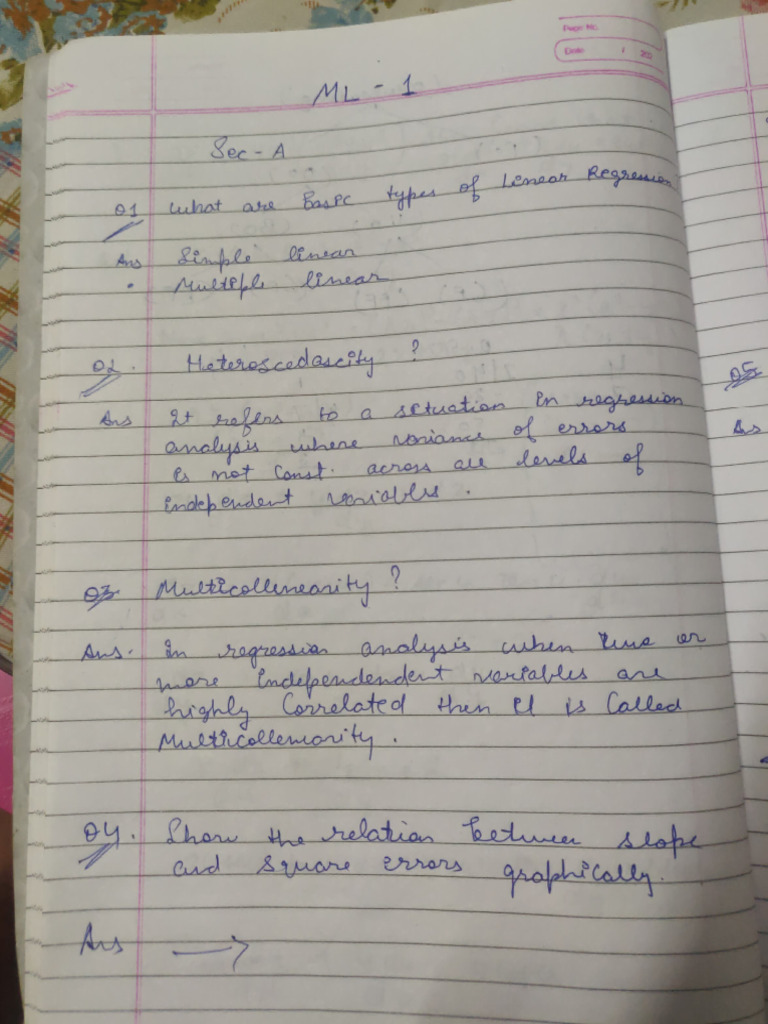 Page No.
Date / 20
ML - 1
Sec - A
Q1 What are Basic types of Linear Regression
Ans Simple linear
• Multiple linear
Q2. Heteroscedascity ?
Ans It refers to a situation in regression
analysis where variance of errors
is not Const. across all levels of
independent variables.
Q3. Multicollinearity ?
Ans. In regression analysis when two or
more Independendent variables are
highly Correlated then it is Called
Multicollinearity.
Q4. Show the relation between slope
and square errors graphically.
Ans →
Q5
Ans